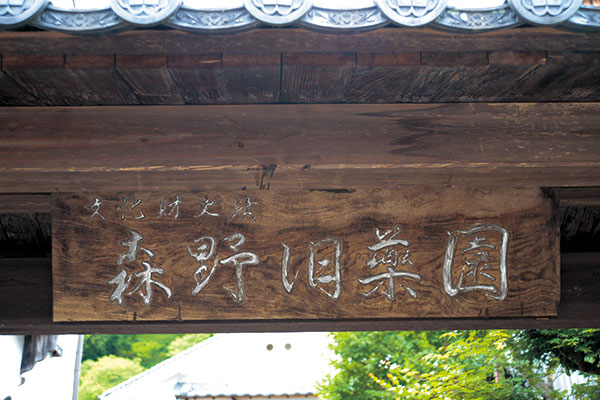 文化財史跡
森野旧薬園